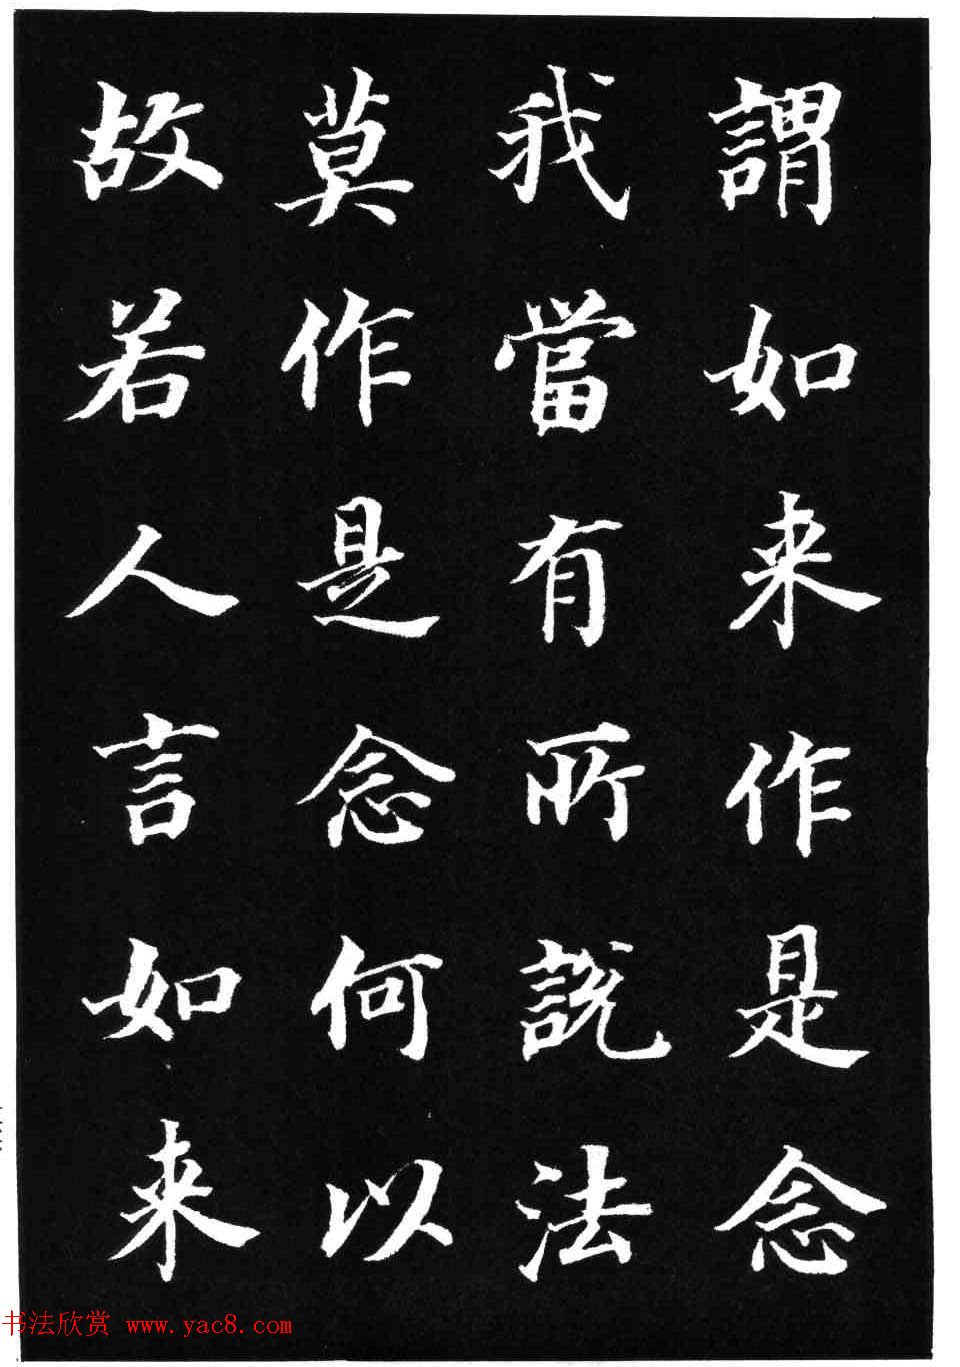 謂如来作是念
我當有所說法
莫作是念何以
故若人言如来
书法欣赏 www.yac8.com